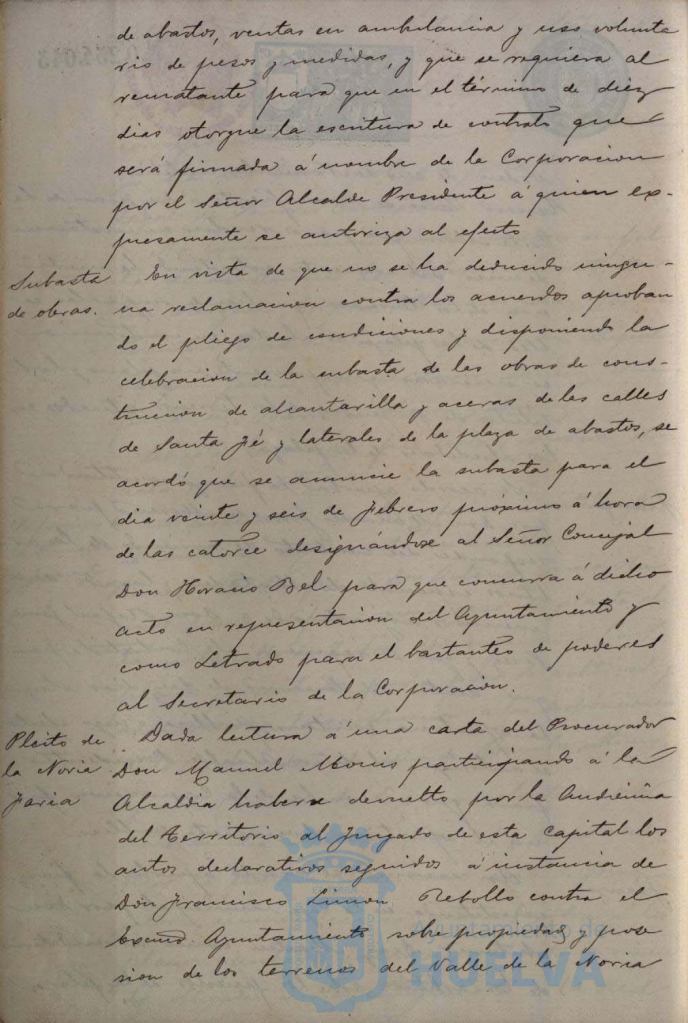 de abastos, ventas en ambulancia y uso volunta
rio de pesos y medidas, y que se requiera al
rematante para que en el término de diez
dias otorgue la escritura de contrato que
será firmada á nombre de la Corporacion
por el Señor Alcalde Presidente á quien ex-
presamente se autoriza al efecto
Subasta
de obras.
En vista de que no se ha deducido ningu-
na reclamacion contra los acuerdos aproban
do el pliego de condiciones y disponiendo la
celebracion de la subasta de las obras de cons-
truccion de alcantarilla y aceras de las calles
de Santa Fé y laterales de la plaza de abastos, se
acordó que se anuncie la subasta para el
dia veinte y seis de Febrero próximo á hora
de las catorce designándose al Señor Concejal
Don Horacio Bel para que concurra á dicho
acto en representacion del Ayuntamiento y
como Letrado para el bastanteo de poderes
al Secretario de la Corporacion.
Pleito de
la Noria
Faria
Dada lectura á una carta del Procurador
Don Manuel participando á la
Alcaldia haberse devuelto por la Audiencia
del Territorio al Juzgado de esta capital los
autos declarativos seguidos á instancia de
Don Francisco Limon Rebollo contra el
Excmo. Ayuntamiento sobre propiedad y pose
sion de los terrenos del Valle de la Noria
HUELVA